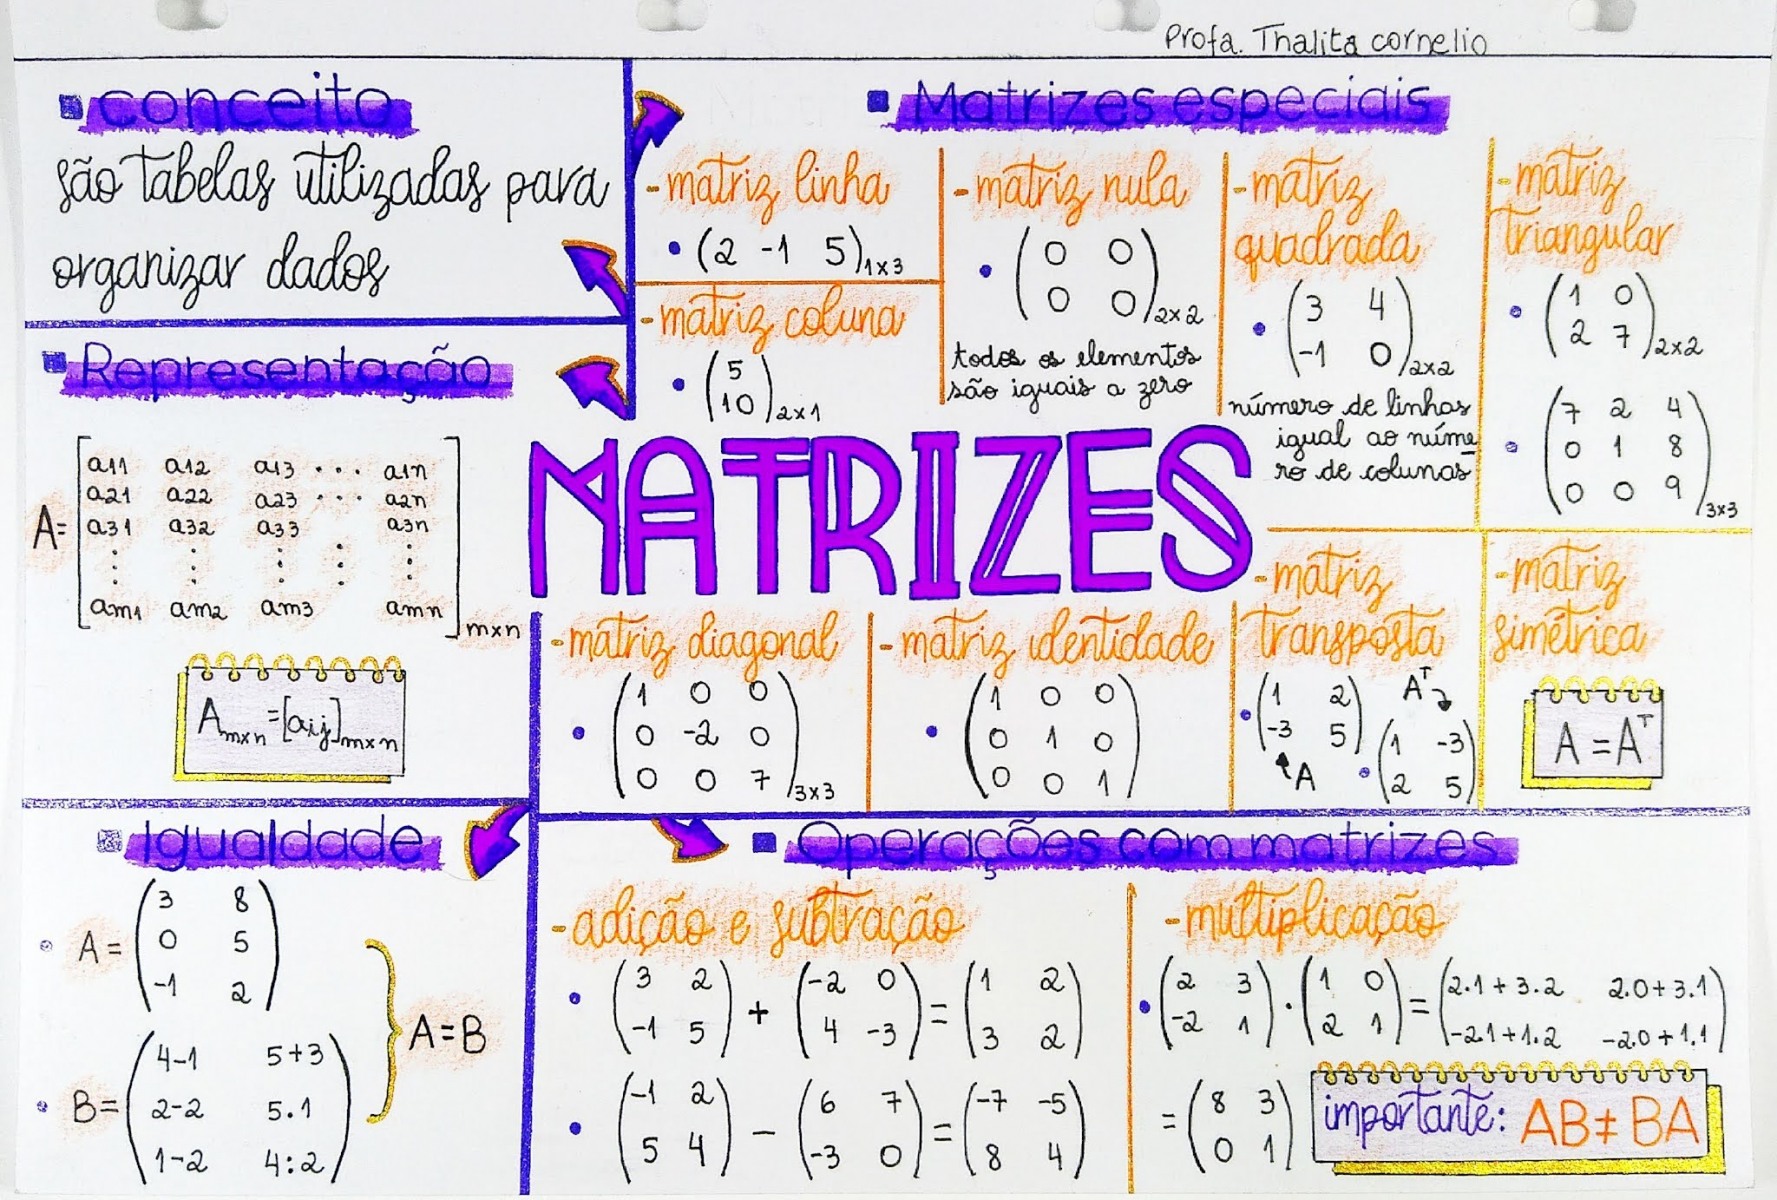 Profa. Thalita cornelio
conceito
são tabelas utilizadas para
organizar dados
Representação
A=
a11 a12 a13 ... a1n
a21 a22 a23 ... a2n
a31 a32 a33 a3n
⋮ ⋮ ⋮ ⋮ ⋮
am1 am2 am3 amn
mxn
Amxn = [aij]mxn
Igualdade
A=
3 8
0 5
-1 2
B=
4-1 5+3
2-2 5.1
1-2 4:2
A=B
Matrizes especiais
-matriz linha
(2 -1 5)1x3
-matriz coluna
5
10
2x1
-matriz nula
0 0
0 0
2x2
todos os elementos
são iguais a zero
-matriz
quadrada
3 4
-1 0
2x2
número de linhas
igual ao núme
ro de colunas
-matriz
triangular
1 0
2 7
2x2
7 2 4
0 1 8
0 0 9
3x3
MATRIZES
-matriz diagonal
1 0 0
0 -2 0
0 0 7
3x3
-matriz identidade
1 0 0
0 1 0
0 0 1
-matriz
transposta
1 2
-3 5
A
AT
1 -3
2 5
-matriz
simétrica
A = AT
Operações com matrizes
-adição e subtração
3 2 -2 0 1 2
+ =
-1 5 4 -3 3 2
-1 2 6 7 -7 -5
- =
5 4 -3 0 8 4
-multiplicação
2 3 1 0 2.1+3.2 2.0+3.1
. =
-2 1 2 1 -2.1+1.2 -2.0+1.1
=
8 3
0 1
importante: AB≠BA